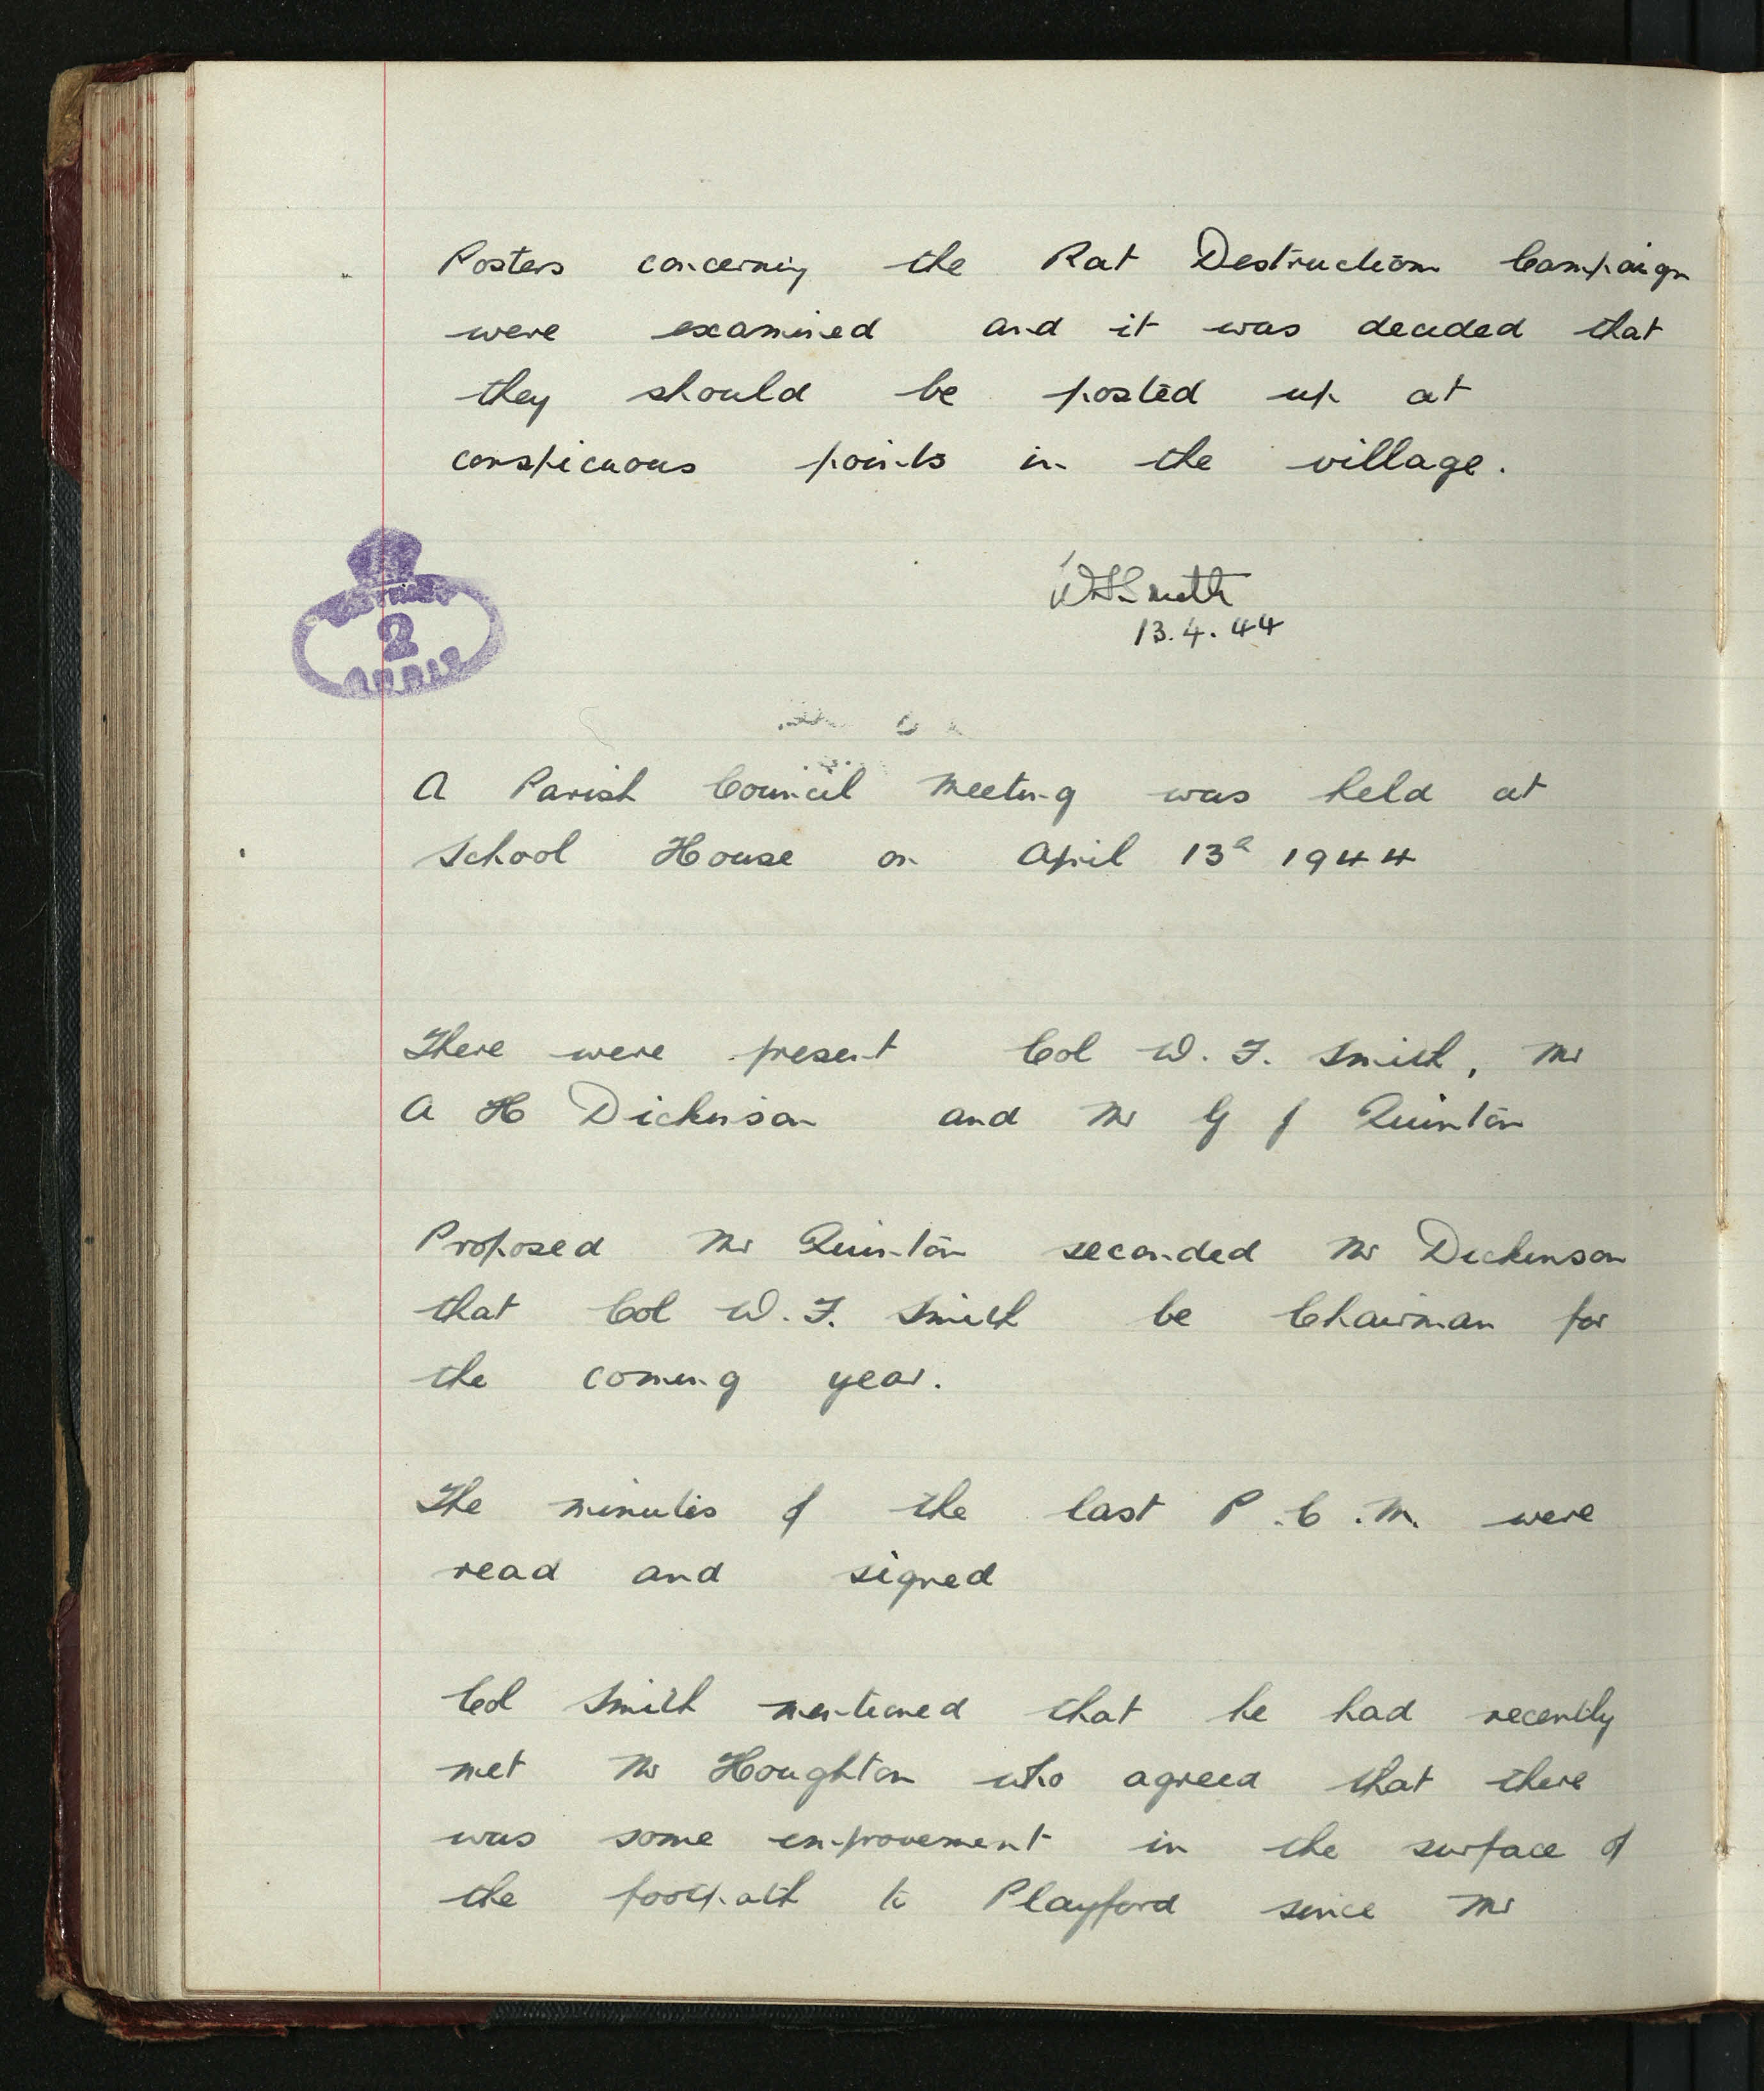 Posters concerning the Rat Destruction Campaign
were examined and it was decided that
they should be posted up at
conspicuous points in the village.
WFSmith
13.4.44
DISTRICT
2
AUDIT
A Parish Council Meeting was held at
School House on April 13th 1944
There were present Col W. F. Smith, Mr
A H Dickinson and Mr G J Quinton
Proposed Mr Quinton seconded Mr Dickinson
that Col W. F. Smith be Chairman for
the coming year.
The minutes of the last P.C.M. were
read and signed
Col Smith mentioned that he had recently
met Mr Houghton who agreed that there
was some improvement in the surface of
the footpath to Playford since Mr